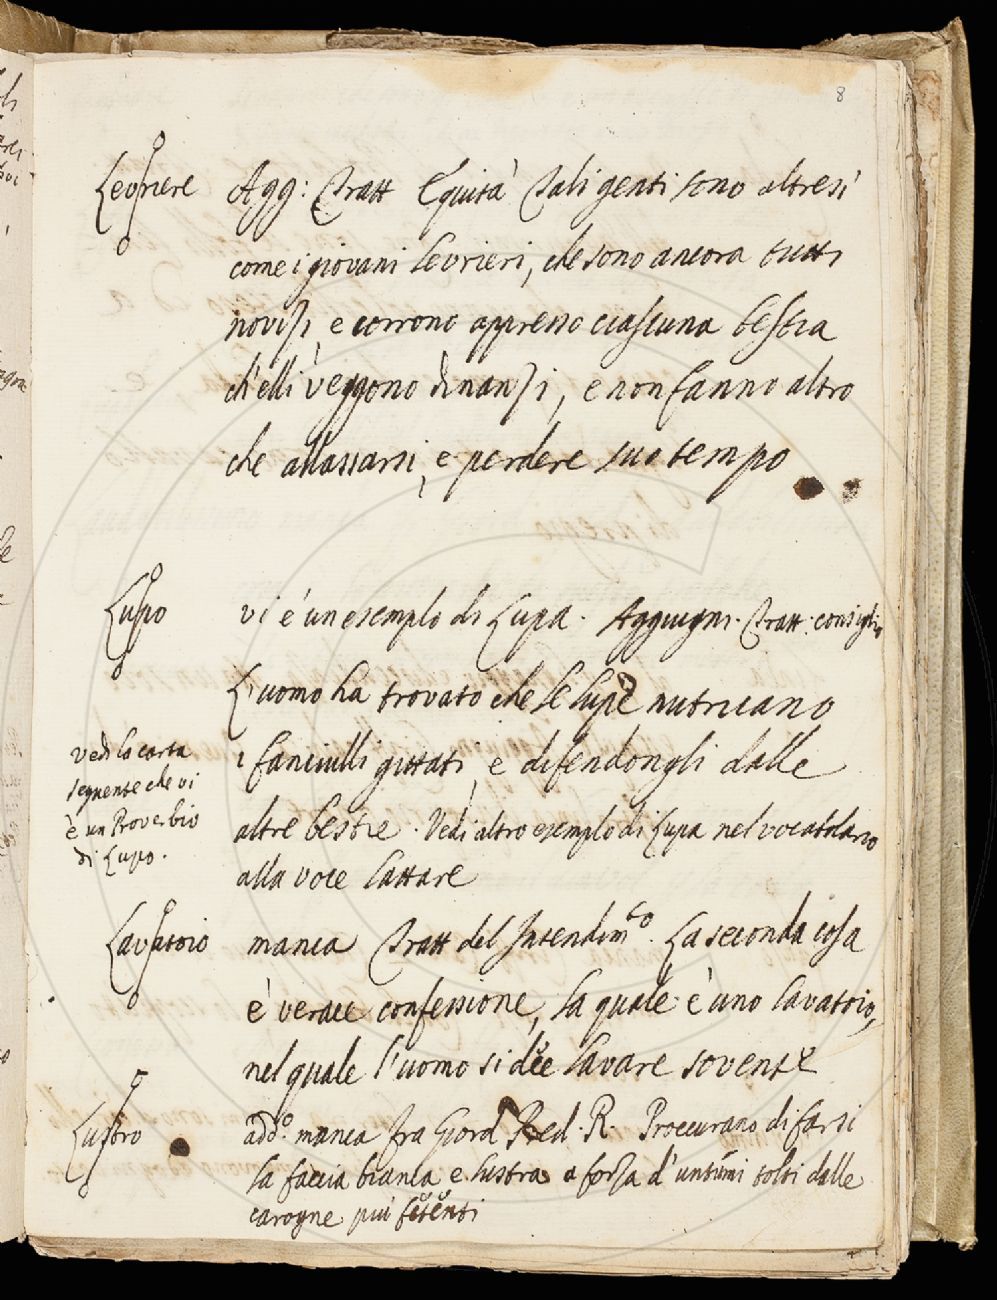 8
Levriere Agg: Tratt Equità Tali genti sono altresì
come i giovani levrieri, che sono ancora tutti
novizi, e corrono appresso ciascuna bestia
ch'elli veggono dinanzi, e non fanno altro
che allassarsi, e perdere suo tempo
Lupo vi è un esemplo di Lupa. Aggiugni. Tratt. consiglio
L'uomo ha trovato che le lupe nutricano
i fanciulli gittati, e difendongli dalle
altre bestie. Vedi altro esemplo di Lupa nel vocabolario
alla voce lattare
vedi la carta
seguente che vi
è un Proverbio
di Lupo.
Lavatoio manca Tratt del Intendimto. La seconda cosa
è verace confessione, la quale è uno lavatoio,
nel quale l'uomo si dee lavare sovente
Lustro addo. manca fra Giord Pred. R. Proccurano di farsi
la faccia bianca e lustra a forza d'untumi tolti dalle
carogne più fetenti